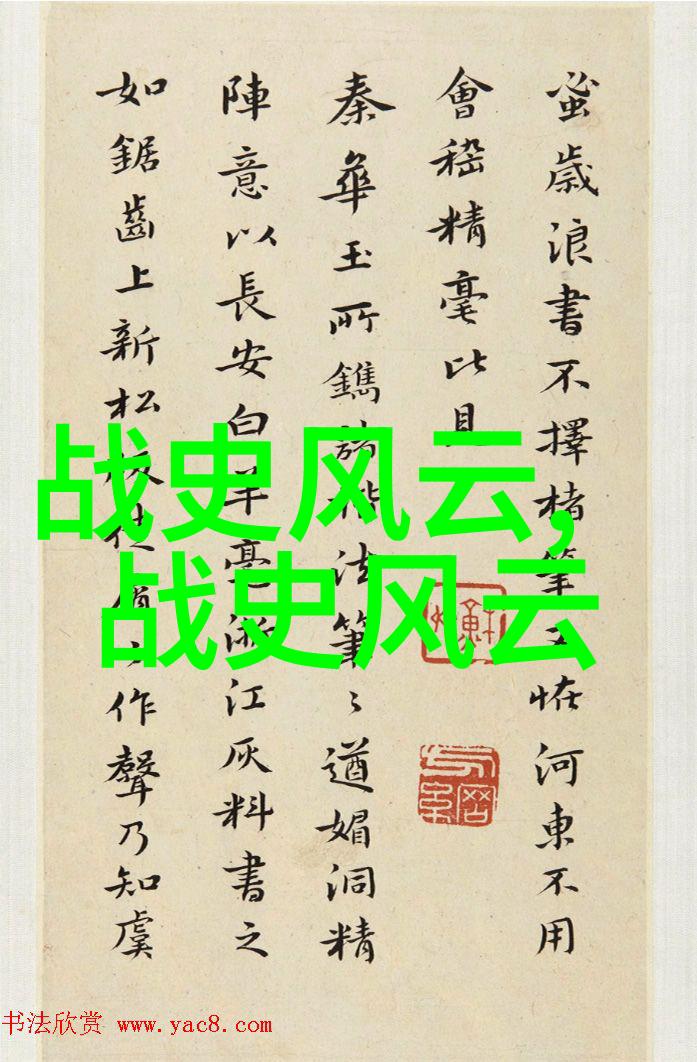 蚤歲浪書不擇楮筆又恠河東不用
會稽精毫比見
秦華玉所鐫諸楷法筆〻遒媚洞精
陣意以長安白羊毫浙江灰料書之
如鋸齒上新松板作聲乃知虞
战史风云,
战史风云
书法欣赏 www.yac8.com